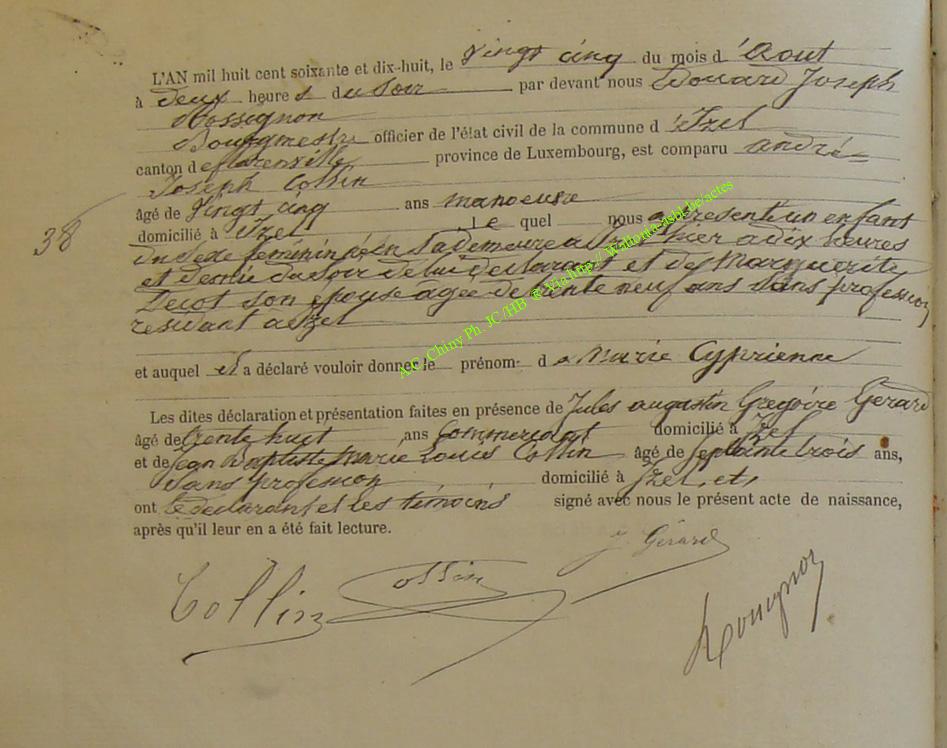 L'AN mil huit cent soixante et dix-huit, le vingt cinq du mois d'Aout
à deux heures du Soir par devant nous Edouard Joseph
Rossignon
Bourgmestre officier de l'état civil de la commune d'Izel
canton de florenville province de Luxembourg, est comparu andré
Joseph Collin
âgé de vingt cinq ans manoeuvre
domicilié à Izel le quel nous a présenté un enfant
38
du sexe féminin né en sa demeure a Izel hier a dix heures
et demie du soir de lui declarant et de Marguerite
Decot son epouse agée de trente neuf ans sans profession
residant a izel
et auquel il a déclaré vouloir donner le prénom de Marie Cyprienne
Les dites déclaration et présentation faites en présence de Jules augustin Grégoire Gerard
âgé de trente huit ans Commercant domicilié à Izel
et de jean Baptiste Marie Louis Collin âgé de septante trois ans,
Sans profession domicilié à Izel, et,
ont le declarant et les témoins signé avec nous le présent acte de naissance,
après qu'il leur en a été fait lecture.
J Gérard
Collin Collin
Rossignon
A.C. Chiny Ph. JC/HB © Via http://Wallonia-asbl.be/actes